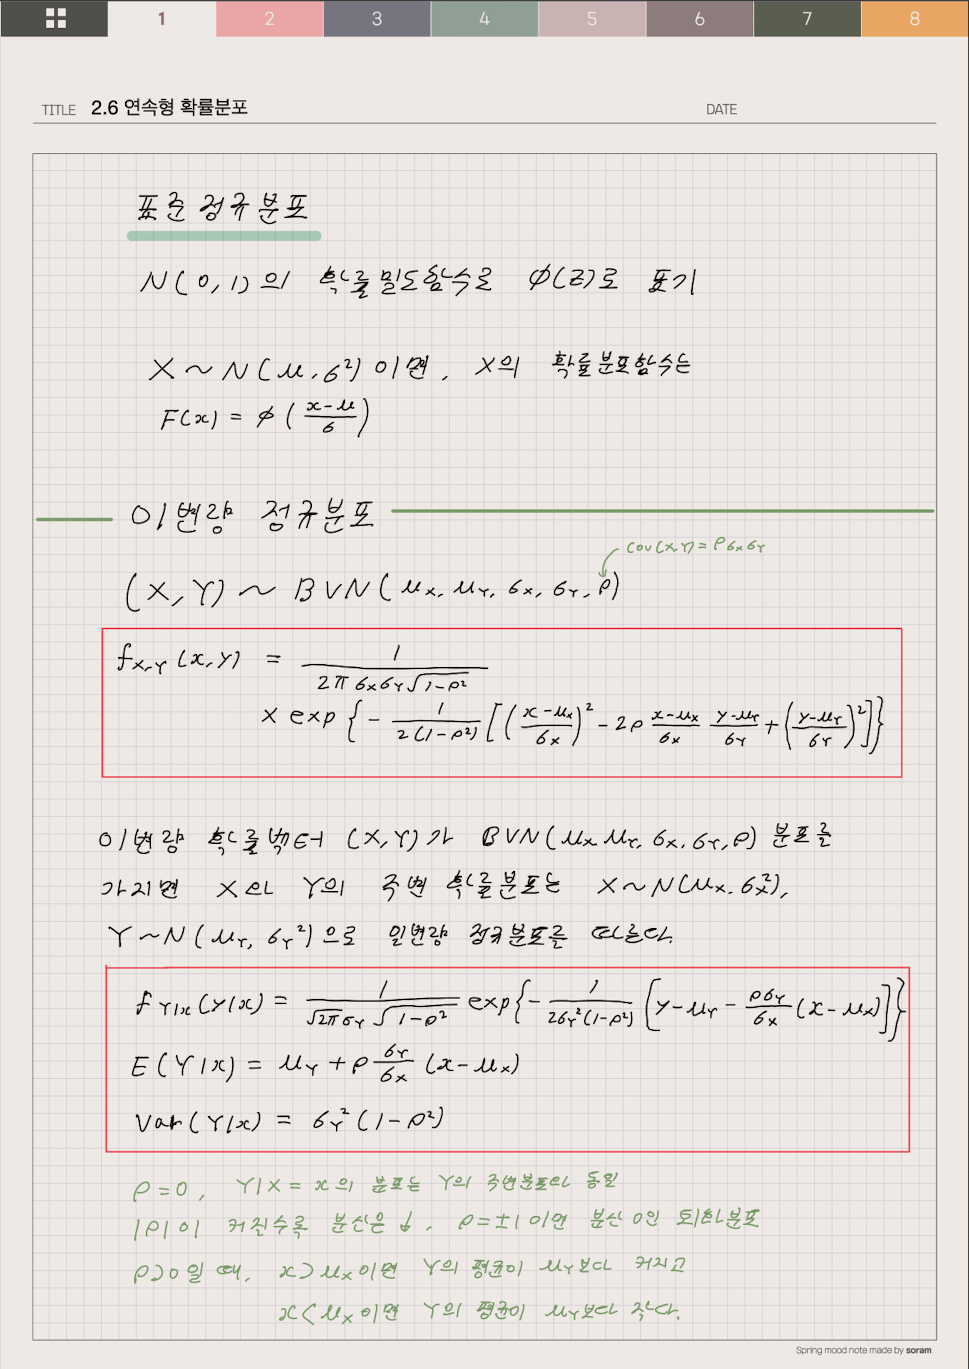 1 2 3 4 5 6 7 8
TITLE 2.6 연속형 확률분포 DATE
표준 정규분포
N(0,1)의 확률밀도함수로 φ(z)로 표기
X ~ N(μ, σ²)이면, X의 확률분포함수는
F(x) = φ((x-μ)/σ)
이변량 정규분포
cov(X,Y) = ρσxσY
(X,Y) ~ BVN(μx, μY, σx, σY, ρ)
fX,Y(x,y) = 1/(2πσxσY√(1-ρ²))
× exp{-1/(2(1-ρ²))[((x-μx)/σx)² - 2ρ (x-μx)/σx (y-μY)/σY + ((y-μY)/σY)²]}
이변량 확률벡터 (X,Y)가 BVN(μx, μY, σx, σY, ρ) 분포를
가지면 X와 Y의 주변 확률분포는 X~N(μx, σx²),
Y~N(μY, σY²)으로 일변량 정규분포를 따른다.
fY|x(y|x) = 1/(√2π σY √(1-ρ²)) exp{-1/(2σY²(1-ρ²))[y-μY - ρσY/σx (x-μx)]}
E(Y|x) = μY + ρ σY/σx (x-μx)
Var(Y|x) = σY²(1-ρ²)
ρ=0, Y|X=x의 분포는 Y의 주변분포와 동일
|ρ|이 커질수록 분산은 ↓, ρ=±1이면 분산 0인 퇴화분포
ρ>0일 때, x>μx이면 Y의 평균이 μY보다 커지고
x<μx이면 Y의 평균이 μY보다 작다.
Spring mood note made by soram